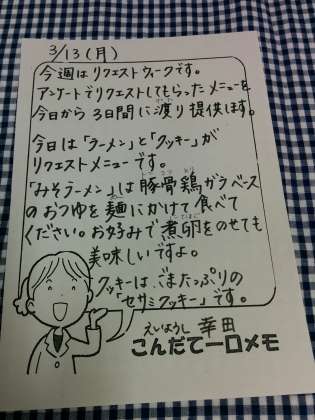 3/13(月)
今週はリクエストウィークです。
アンケートでリクエストしてもらったメニューを
今日から3日間に渡り提供します。
今日は「ラーメン」と「クッキー」が
リクエストメニューです。
「みそラーメン」は豚骨鶏ガラベース
のおつゆを麺にかけて食べて
ください。お好みで煮卵をのせても
美味しいですよ。
クッキーは、ごまたっぷりの
「セサミクッキー」です。
えいようし 幸田
こんだて一口メモ